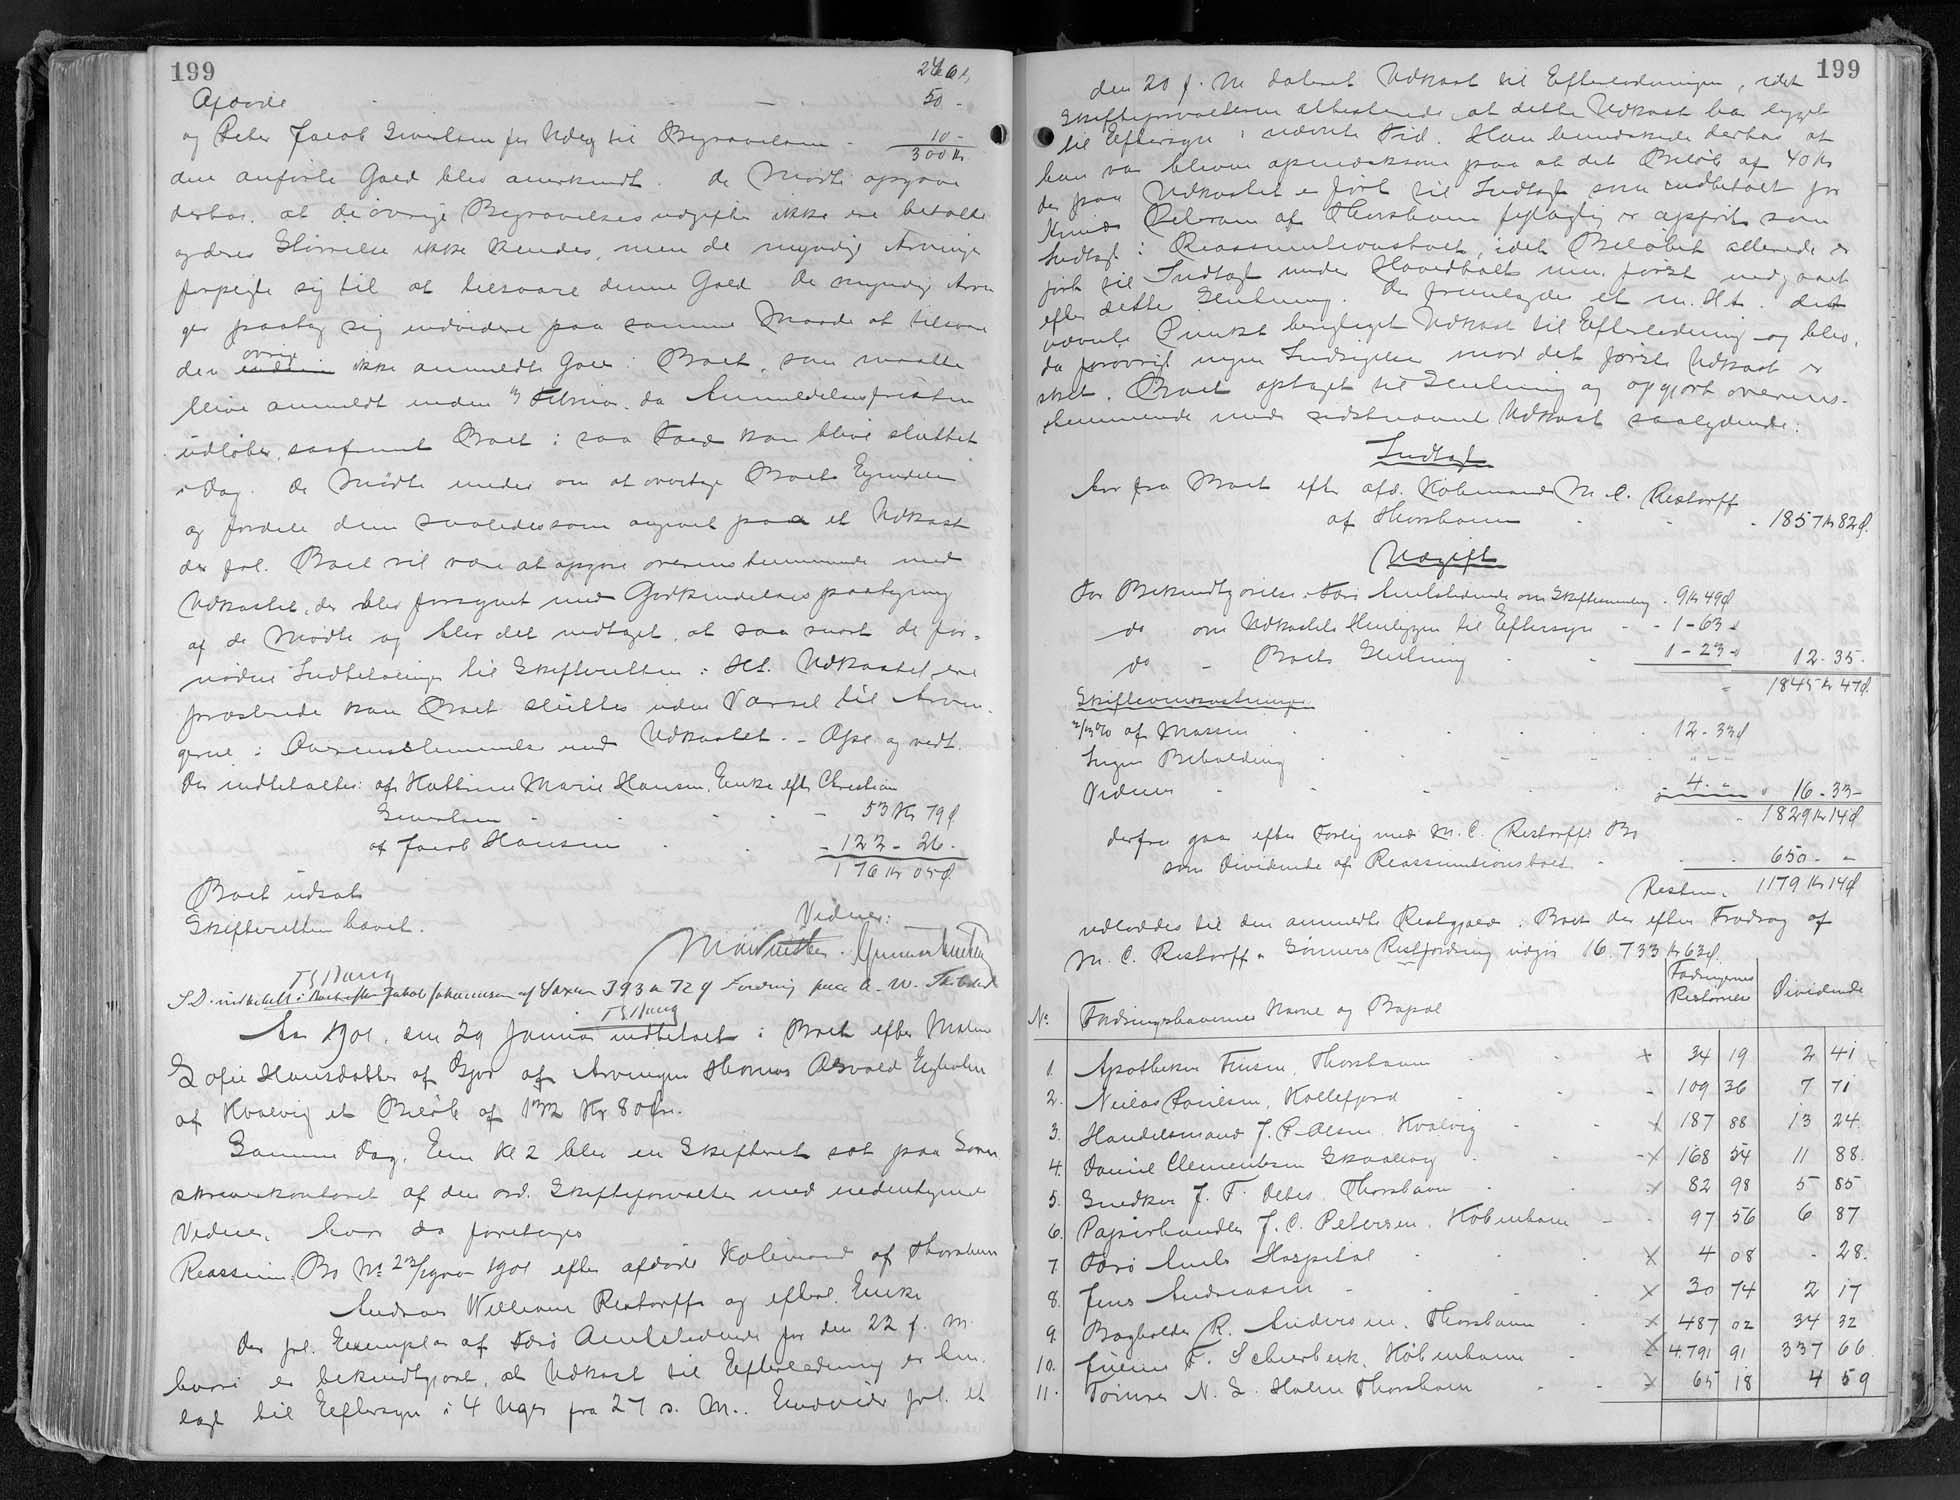 199
240 Kr
Afdøde - - - 50 -
og Peter Jacob Sivertsen for Udlæg til Begravelsen - 10 -
300 Kr.
den anførte Gæld blev anerkendt. De Mødte opgave
derhos, at de øvrige Begravelsesudgifter ikke ere betalte
og deres Størrelse ikke kendes, men de myndige Arvinge
forpligte sig til at tilsvare denne Gæld. De myndige Arvin
ger paatog sig endvidere paa samme Maade at tilsvare
den øvrige ikke anmeldte Gæld i Boet, som maatte
blive anmeldt inden Februar, da Anmeldelsesfristen
udløber, saafremt Boet i saa Fald kan blive sluttet
i Dag. De Mødte enedes om at overtage Boets Ejendele
og fordele dem saaledes som angivet paa et Udkast
der frl. Boet vil være at opgøre overensstemmende med
Udkastet, der blev forsynet med Godkendelsespaategning
af de Mødte og blev det vedtaget, at saa snart de for-
nødne Indbetalinger til Skifteretten i Hht. Udkastet ere
præsterede kan Boet sluttes uden Varsel til Arvin-
gerne i Overensstemmelse med Udkastet. - Opl. og vedt.
Der indbetaltes: af Kathrine Marie Hansen, Enke efter Christian
Sivertsen - - - - 53 Kr 79 Ø
af Jacob Hansen - - - 122 - 26 -
176 Kr 05 Ø
Boet udsat
Skifteretten hævet.
Vidner:
S.D. indbetalt i Boet efter Jakob Johannesen af Saxen 393 Kr 72 Ø Fordring paa A. W.
Aar 1901, den 29 Januar indbetalt i Boet efter Malene
Sofie Hansdatter af Gjov af Arvingen Thomas Osvald Eyholm
af Kvalvig et Beløb af 132 Kr 80 Øre.
Samme Dag, Em Kl 2 blev en Skifteret sat paa Soren
skriverkontoret af den ord. Skifteforvalter med undertegnede
Vidner, hvor da foretoges
Reassum. Bo No 23/1900-1901 efter afdøde Købmand af Thorshavn
Andreas William Restorff og efterl. Enke
Der frl. Exemplar af Færø Amtstidende for den 22 f. M.
hvori er bekendtgjort, at Udkast til Efterlodning er hen-
lagt til Eftersyn i 4 Uger fra 27 s. M.. Endvidere frl. et
199
den 20 f. M. dateret Udkast til Efterlodningen, idet
Skifteforvalteren attesterede, at dette Udkast har ligget
til Eftersyn i nævnte Tid. Han bemærkede derhos at
han var bleven opmærksom paa at det Beløb af 40 Kr
der paa Udkastet er ført til Indtægt som indbetalt for
Knud Petersen af Thorshavn fejlagtig er opført som
Indtægt i Reassumtionsboet, idet Beløbet allerede er
ført til Indtægt under Hovedboet men først indgaaet
efter dettes Slutning. Der fremlagdes et m. H. t. det
nævnte Punkt berigtiget Udkast til Efterlodning og blev,
da forøvrigt ingen Indsigelse mod det første Udkast er
sket, Boet optaget til Slutning og opgjort overens-
stemmende med sidstnævnte Udkast saalydende:
Indtægt
Arv fra Boet efter afd. Købmand M. C. Restorff
af Thorshavn - - - 1857 Kr 82 Ø.
Udgift
For Bekendtgørelse i Færø Amtstidende om Skiftesamling - 9 Kr 49 Ø
do om Udkastets Henliggen til Eftersyn - - 1 - 63 -
do - Boets Slutning - - 1 - 23 - 12 - 35 -
- 1845 Kr 47 Ø.
Skifteomkostninger
2/3 % af Massen - - - - 12 - 33 Ø
Ingen Beholdning - - - - " - "
Vidner - - - - 4 - " - 16 - 33 -
- 1829 Kr 14 Ø
derfra gaa efter Forlig med M. C. Restorffs Bo
som Dividende af Reassumtionsboet - - - 650 - -
Resten - 1179 Kr 14 Ø
udloddes til den anmeldte Restgjæld i Boet der efter Fradrag af
M. C. Restorff & Sønners Restfordring udgør 16.733 Kr 63 Ø.
No | Fordringshavernes Navne og Bopæl | Fordringernes Restbeløb | Dividende
1. Apotheker Finsen, Thorshavn - - x 34 19 2 41
2. Niclas Poulsen, Kollefjord - - - 109 36 7 71
3. Handelsmand J. P. Olsen, Kvalvig - - x 187 88 13 24.
4. Daniel Clementsen Skaalevig - - x 168 54 11 88.
5. Snedker J. F. Debes, Thorshavn - - x 82 98 5 85
6. Papirhandler J. C. Petersen, København - - 97 56 6 87
7. Færø Amts Hospital - - - x 4 08 - 28.
8. Jens Andreasen - - - x 30 74 2 17
9. Bogholder R. Andersen, Thorshavn - x 487 02 34 32
10. Firma F. Schierbeck, København - x 4.791 91 337 66
11. Tømrer N. S. Holm Thorshavn - - x 65 18 4 59